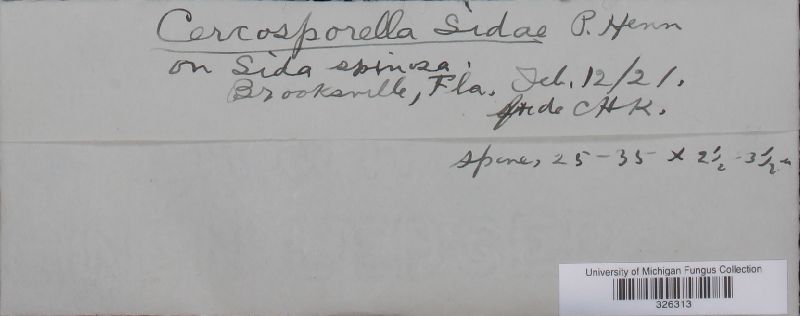 Cercosporella Sidae P. Henn
on Sida spinosa.
Brooksville, Fla. Feb. 12/21.
fide CHK.
spores 25-35 x 2½-3½ u
University of Michigan Fungus Collection
326313